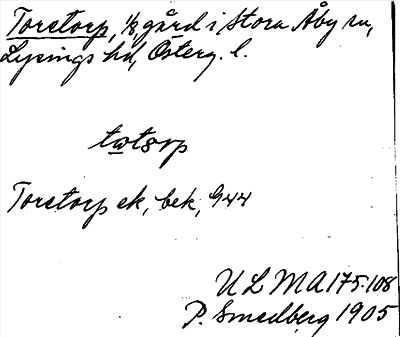 Toretorp, 1/8, gård i Stora Åby sn,
Lysings hd, Österg. l.
Toretorp ek, bek, G44
ULMA 175:108
P. Smedberg 1905